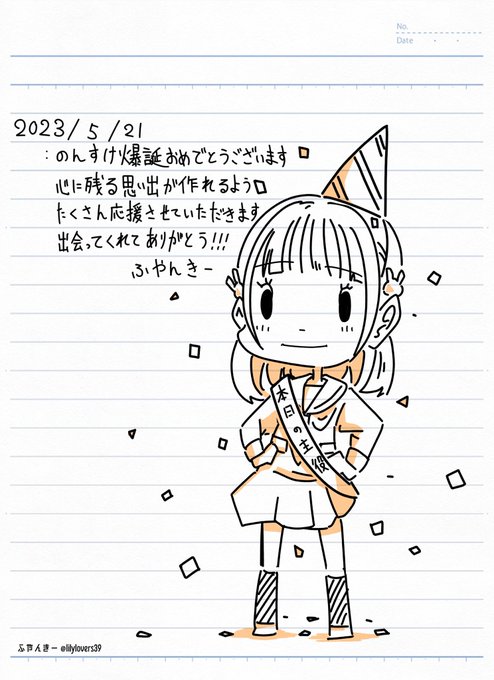 No.
Date
2023/5/21
:のんすけ爆誕おめでとうございます
心に残る思い出が作れるよう
たくさん応援させていただきます
出会ってくれてありがとう!!!
ふやんきー
本日の主役
ふやんきー @lilylovers39